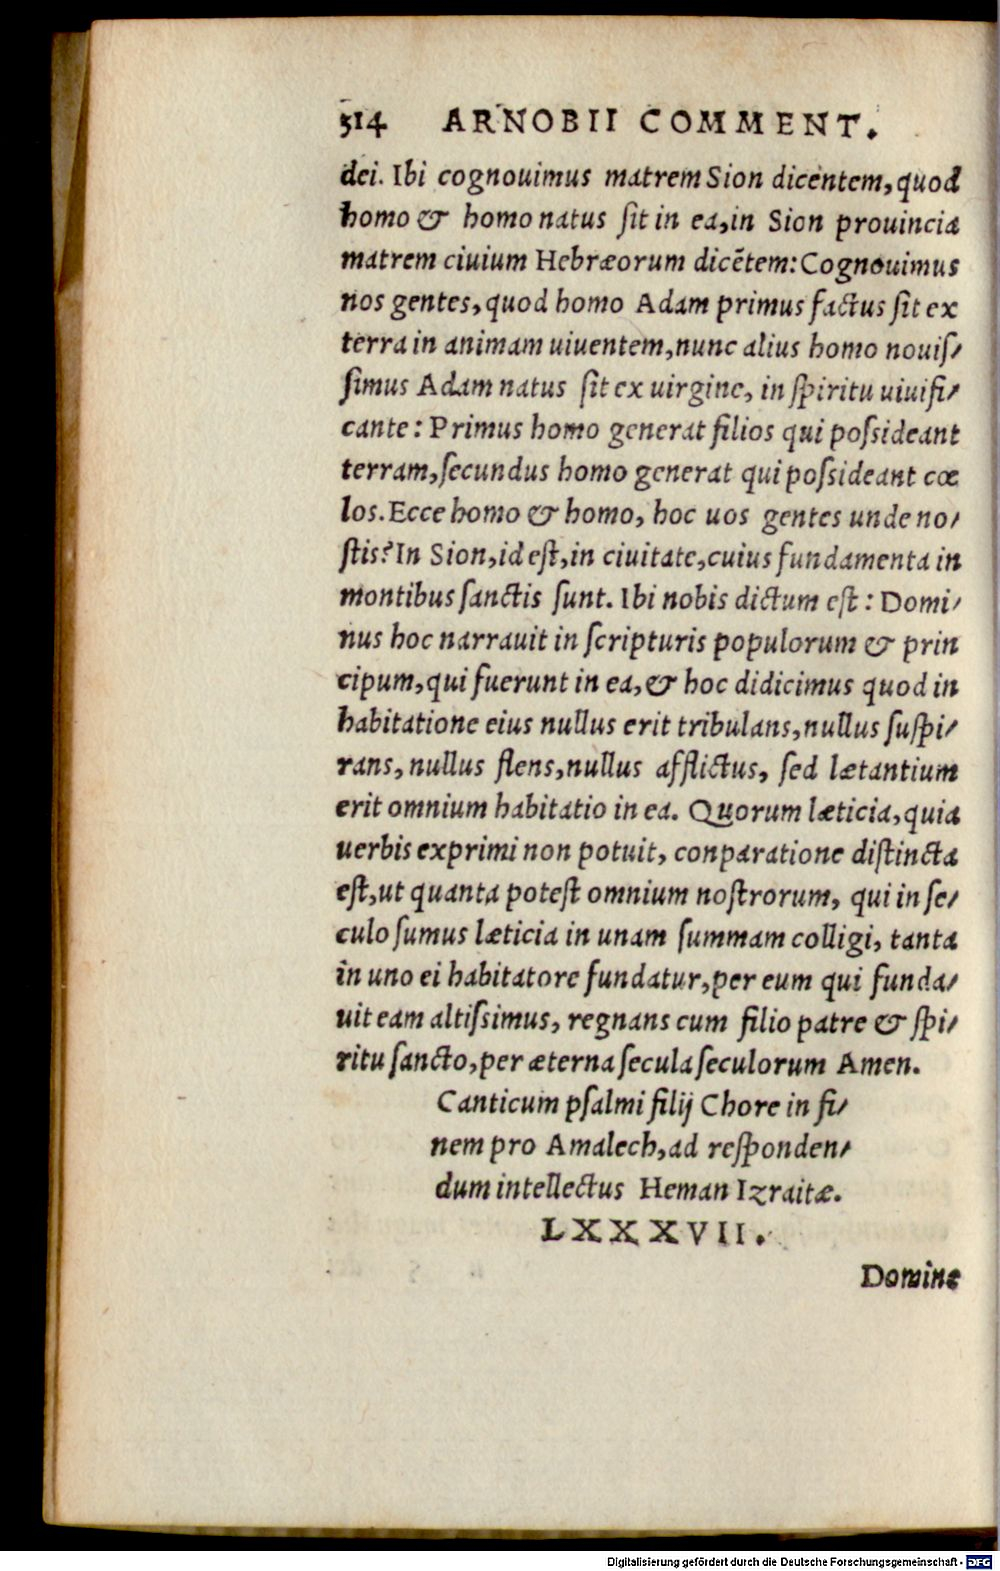 514 ARNOBII COMMENT.
dei. Ibi cognouimus matrem Sion dicentem, quod
homo & homo natus ſit in ea, in Sion prouincia
matrem ciuium Hebræorum dicẽtem: Cognouimus
nos gentes, quod homo Adam primus factus ſit ex
terra in animam uiuentem, nunc alius homo nouiſ/
ſimus Adam natus ſit ex uirgine, in ſpiritu uiuifi/
cante: Primus homo generat filios qui poſsideant
terram, ſecundus homo generat qui poſsideant cœ
los. Ecce homo & homo, hoc uos gentes unde no/
ſtis? In Sion, id eſt, in ciuitate, cuius fundamenta in
montibus ſanctis ſunt. Ibi nobis dictum eſt: Domi/
nus hoc narrauit in ſcripturis populorum & prin
cipum, qui fuerunt in ea, & hoc didicimus quod in
habitatione eius nullus erit tribulans, nullus ſuſpi/
rans, nullus flens, nullus afflictus, ſed lætantium
erit omnium habitatio in ea. Quorum læticia, quia
uerbis exprimi non potuit, conparatione diſtincta
eſt, ut quanta poteſt omnium noſtrorum, qui in ſe/
culo ſumus læticia in unam ſummam colligi, tanta
in uno ei habitatore fundatur, per eum qui funda/
uit eam altiſsimus, regnans cum filio patre & ſpi/
ritu ſancto, per æterna ſecula ſeculorum Amen.
Canticum pſalmi filij Chore in fi/
nem pro Amalech, ad reſponden/
dum intellectus Heman Izraitæ.
LXXXVII.
Domine
Digitalisierung gefördert durch die Deutsche Forschungsgemeinschaft - DFG